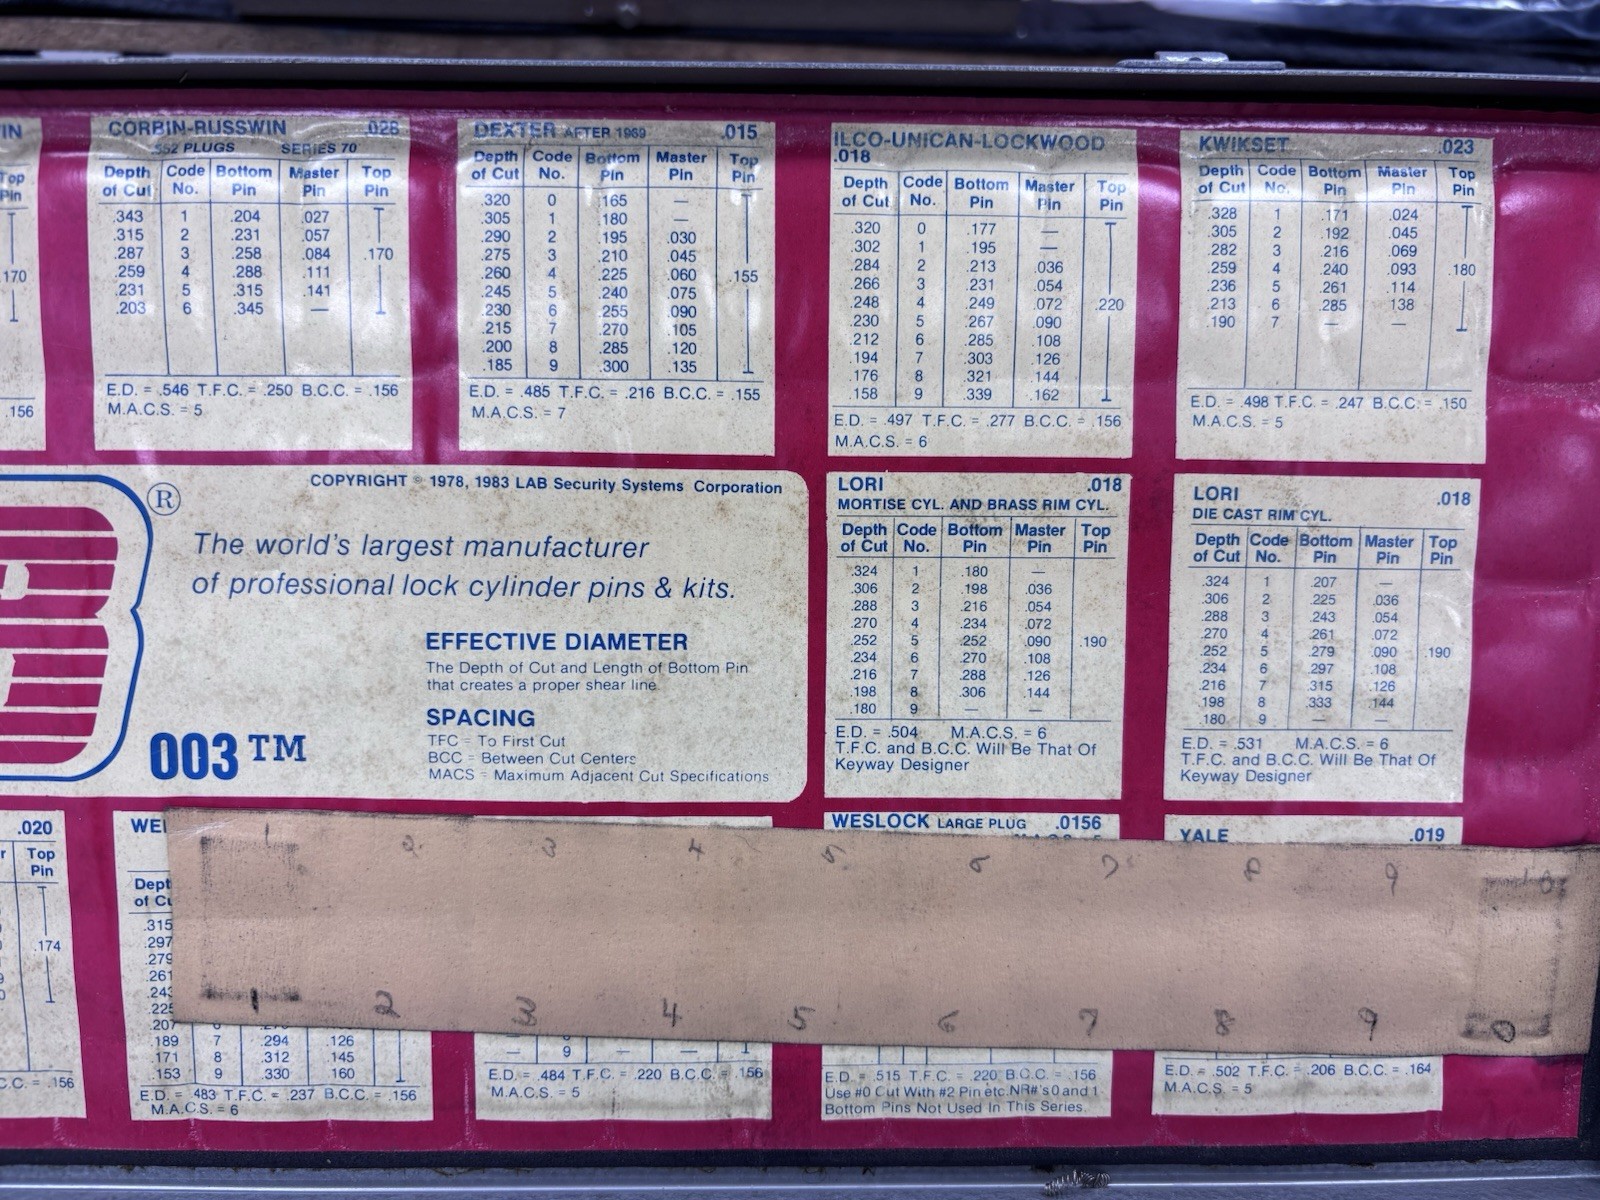 IN
Top
Pin
.170
.156
CORBIN-RUSSWIN .028
552 PLUGS SERIES 70
Depth of Cut Code No. Bottom Pin Master Pin Top Pin
.343 1 .204 .027
.315 2 .231 .057
.287 3 .258 .084 .170
.259 4 .288 .111
.231 5 .315 .141
.203 6 .345 —
E.D. = .546 T.F.C. = .250 B.C.C. = .156
M.A.C.S. = 5
DEXTER AFTER 1969 .015
Depth of Cut Code No. Bottom Pin Master Pin Top Pin
.320 0 .165 —
.305 1 .180 —
.290 2 .195 .030
.275 3 .210 .045
.260 4 .225 .060 .155
.245 5 .240 .075
.230 6 .255 .090
.215 7 .270 .105
.200 8 .285 .120
.185 9 .300 .135
E.D. = .485 T.F.C. = .216 B.C.C. = .155
M.A.C.S. = 7
ILCO-UNICAN-LOCKWOOD
.018
Depth of Cut Code No. Bottom Pin Master Pin Top Pin
.320 0 .177 —
.302 1 .195 —
.284 2 .213 .036
.266 3 .231 .054
.248 4 .249 .072 .220
.230 5 .267 .090
.212 6 .285 .108
.194 7 .303 .126
.176 8 .321 .144
.158 9 .339 .162
E.D. = .497 T.F.C. = .277 B.C.C. = .156
M.A.C.S. = 6
KWIKSET .023
Depth of Cut Code No. Bottom Pin Master Pin Top Pin
.328 1 .171 .024
.305 2 .192 .045
.282 3 .216 .069
.259 4 .240 .093 .180
.236 5 .261 .114
.213 6 .285 138
.190 7 — —
E.D. = .498 T.F.C. = .247 B.C.C. = .150
M.A.C.S. = 5
®
COPYRIGHT © 1978, 1983 LAB Security Systems Corporation
The world's largest manufacturer
of professional lock cylinder pins & kits.
EFFECTIVE DIAMETER
The Depth of Cut and Length of Bottom Pin
that creates a proper shear line
SPACING
TFC = To First Cut
BCC = Between Cut Centers
MACS = Maximum Adjacent Cut Specifications
003™
LORI .018
MORTISE CYL. AND BRASS RIM CYL.
Depth of Cut Code No. Bottom Pin Master Pin Top Pin
.324 1 .180 —
.306 2 .198 .036
.288 3 .216 .054
.270 4 .234 .072
.252 5 .252 .090 .190
.234 6 .270 .108
.216 7 .288 .126
.198 8 .306 .144
.180 9 — —
E.D. = .504 M.A.C.S. = 6
T.F.C. and B.C.C. Will Be That Of
Keyway Designer
LORI .018
DIE CAST RIM CYL.
Depth of Cut Code No. Bottom Pin Master Pin Top Pin
.324 1 .207 —
.306 2 .225 .036
.288 3 .243 .054
.270 4 .261 .072
.252 5 .279 .090 .190
.234 6 .297 .108
.216 7 .315 .126
.198 8 .333 .144
.180 9 — —
E.D. = .531 M.A.C.S. = 6
T.F.C. and B.C.C. Will Be That Of
Keyway Designer
.020
Top
Pin
.174
C.C. = .156
WEL
Dept
of Cu
.315
.297
.279
.261
.243
.225
.207
.189 7 .294 .126
.171 8 .312 .145
.153 9 .330 .160
E.D. = .483 T.F.C. = .237 B.C.C. = .156
M.A.C.S. = 6
— 9 — —
E.D. = .484 T.F.C. = .220 B.C.C. = .156
M.A.C.S. = 5
WESLOCK LARGE PLUG .0156
E.D. = .515 T.F.C. = .220 B.C.C. = .156
Use #0 Cut With #2 Pin etc. NR#'s 0 and 1
Bottom Pins Not Used In This Series.
YALE .019
E.D. = .502 T.F.C. = .206 B.C.C. = .164
M.A.C.S. = 5
1 2 3 4 5 6 7 8 9 10
1 2 3 4 5 6 7 8 9 0